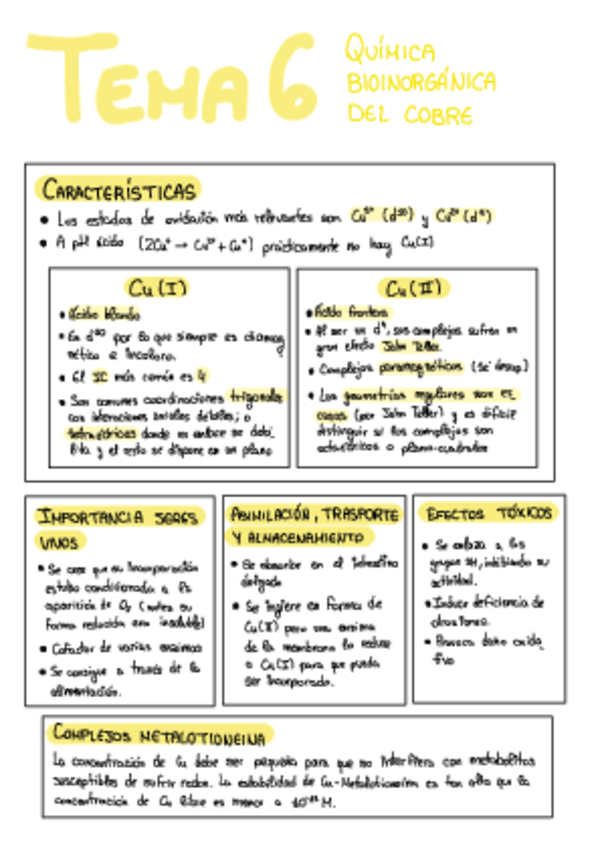 TEMA 6
QUÍMICA
BIOINORGÁNICA
DEL COBRE
CARACTERÍSTICAS
• Los estados de oxidación más relevantes son Cu⁺ (d¹⁰) y Cu²⁺ (d⁹)
• A pH ácido (2Cu⁺ → Cu²⁺ + Cu°) prácticamente no hay Cu(I)
Cu (I)
• Ácido blando
• Es d¹⁰ por lo que siempre es diamag
nético e incoloro.
• El IC más común es 4
• Son comunes coordinaciones trigonales
con interacciones axiales débiles; o
tetraédricas donde un enlace se debi
lita y el resto se dispone en un plano
Cu (II)
• Ácido frontera
• Al ser un d⁹, sus complejos sufren un
gran efecto Jahn Teller.
• Complejos paramagnéticos (1e⁻ desap)
• Las geometrías regulares son es
casas (por Jahn Teller) y es difícil
distinguir si los complejos son
octaédricos o plano-cuadrados
IMPORTANCIA SERES
VIVOS
• Se cree que su incorporación
estuvo condicionada a la
aparición de O₂ (antes su
forma reducida era insoluble)
• Cofactor de varias enzimas
• Se consigue a través de la
alimentación.
ASIMILACIÓN, TRASPORTE
Y ALMACENAMIENTO
• Se absorbe en el intestino
delgado
• Se ingiere en forma de
Cu(II) pero una enzima
de la membrana lo reduce
a Cu(I) para que pueda
ser incorporado.
EFECTOS TÓXICOS
• Se enlaza a los
grupos SH, inhibiendo su
actividad.
• Induce deficiencia de
otros iones.
• Provoca daño oxida
tivo
COMPLEJOS METALOTIONEINA
La concentración de Cu debe ser pequeña para que no interfiera con metabolitos
susceptibles de sufrir redox. La estabilidad de Cu-Metalotioneína es tan alta que la
concentración de Cu libre es menor a M.